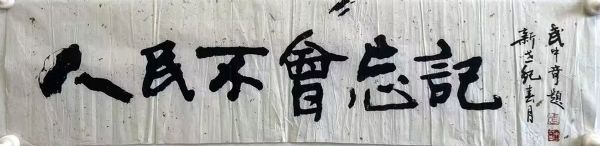 人民不會忘記
武中奇題
新世纪春月